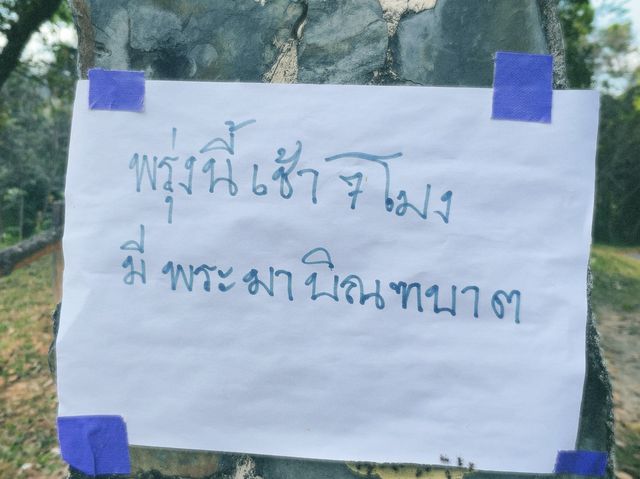 พรุ่งนี้ เช้า 7 โมง
มี พระมาบิณฑบาต